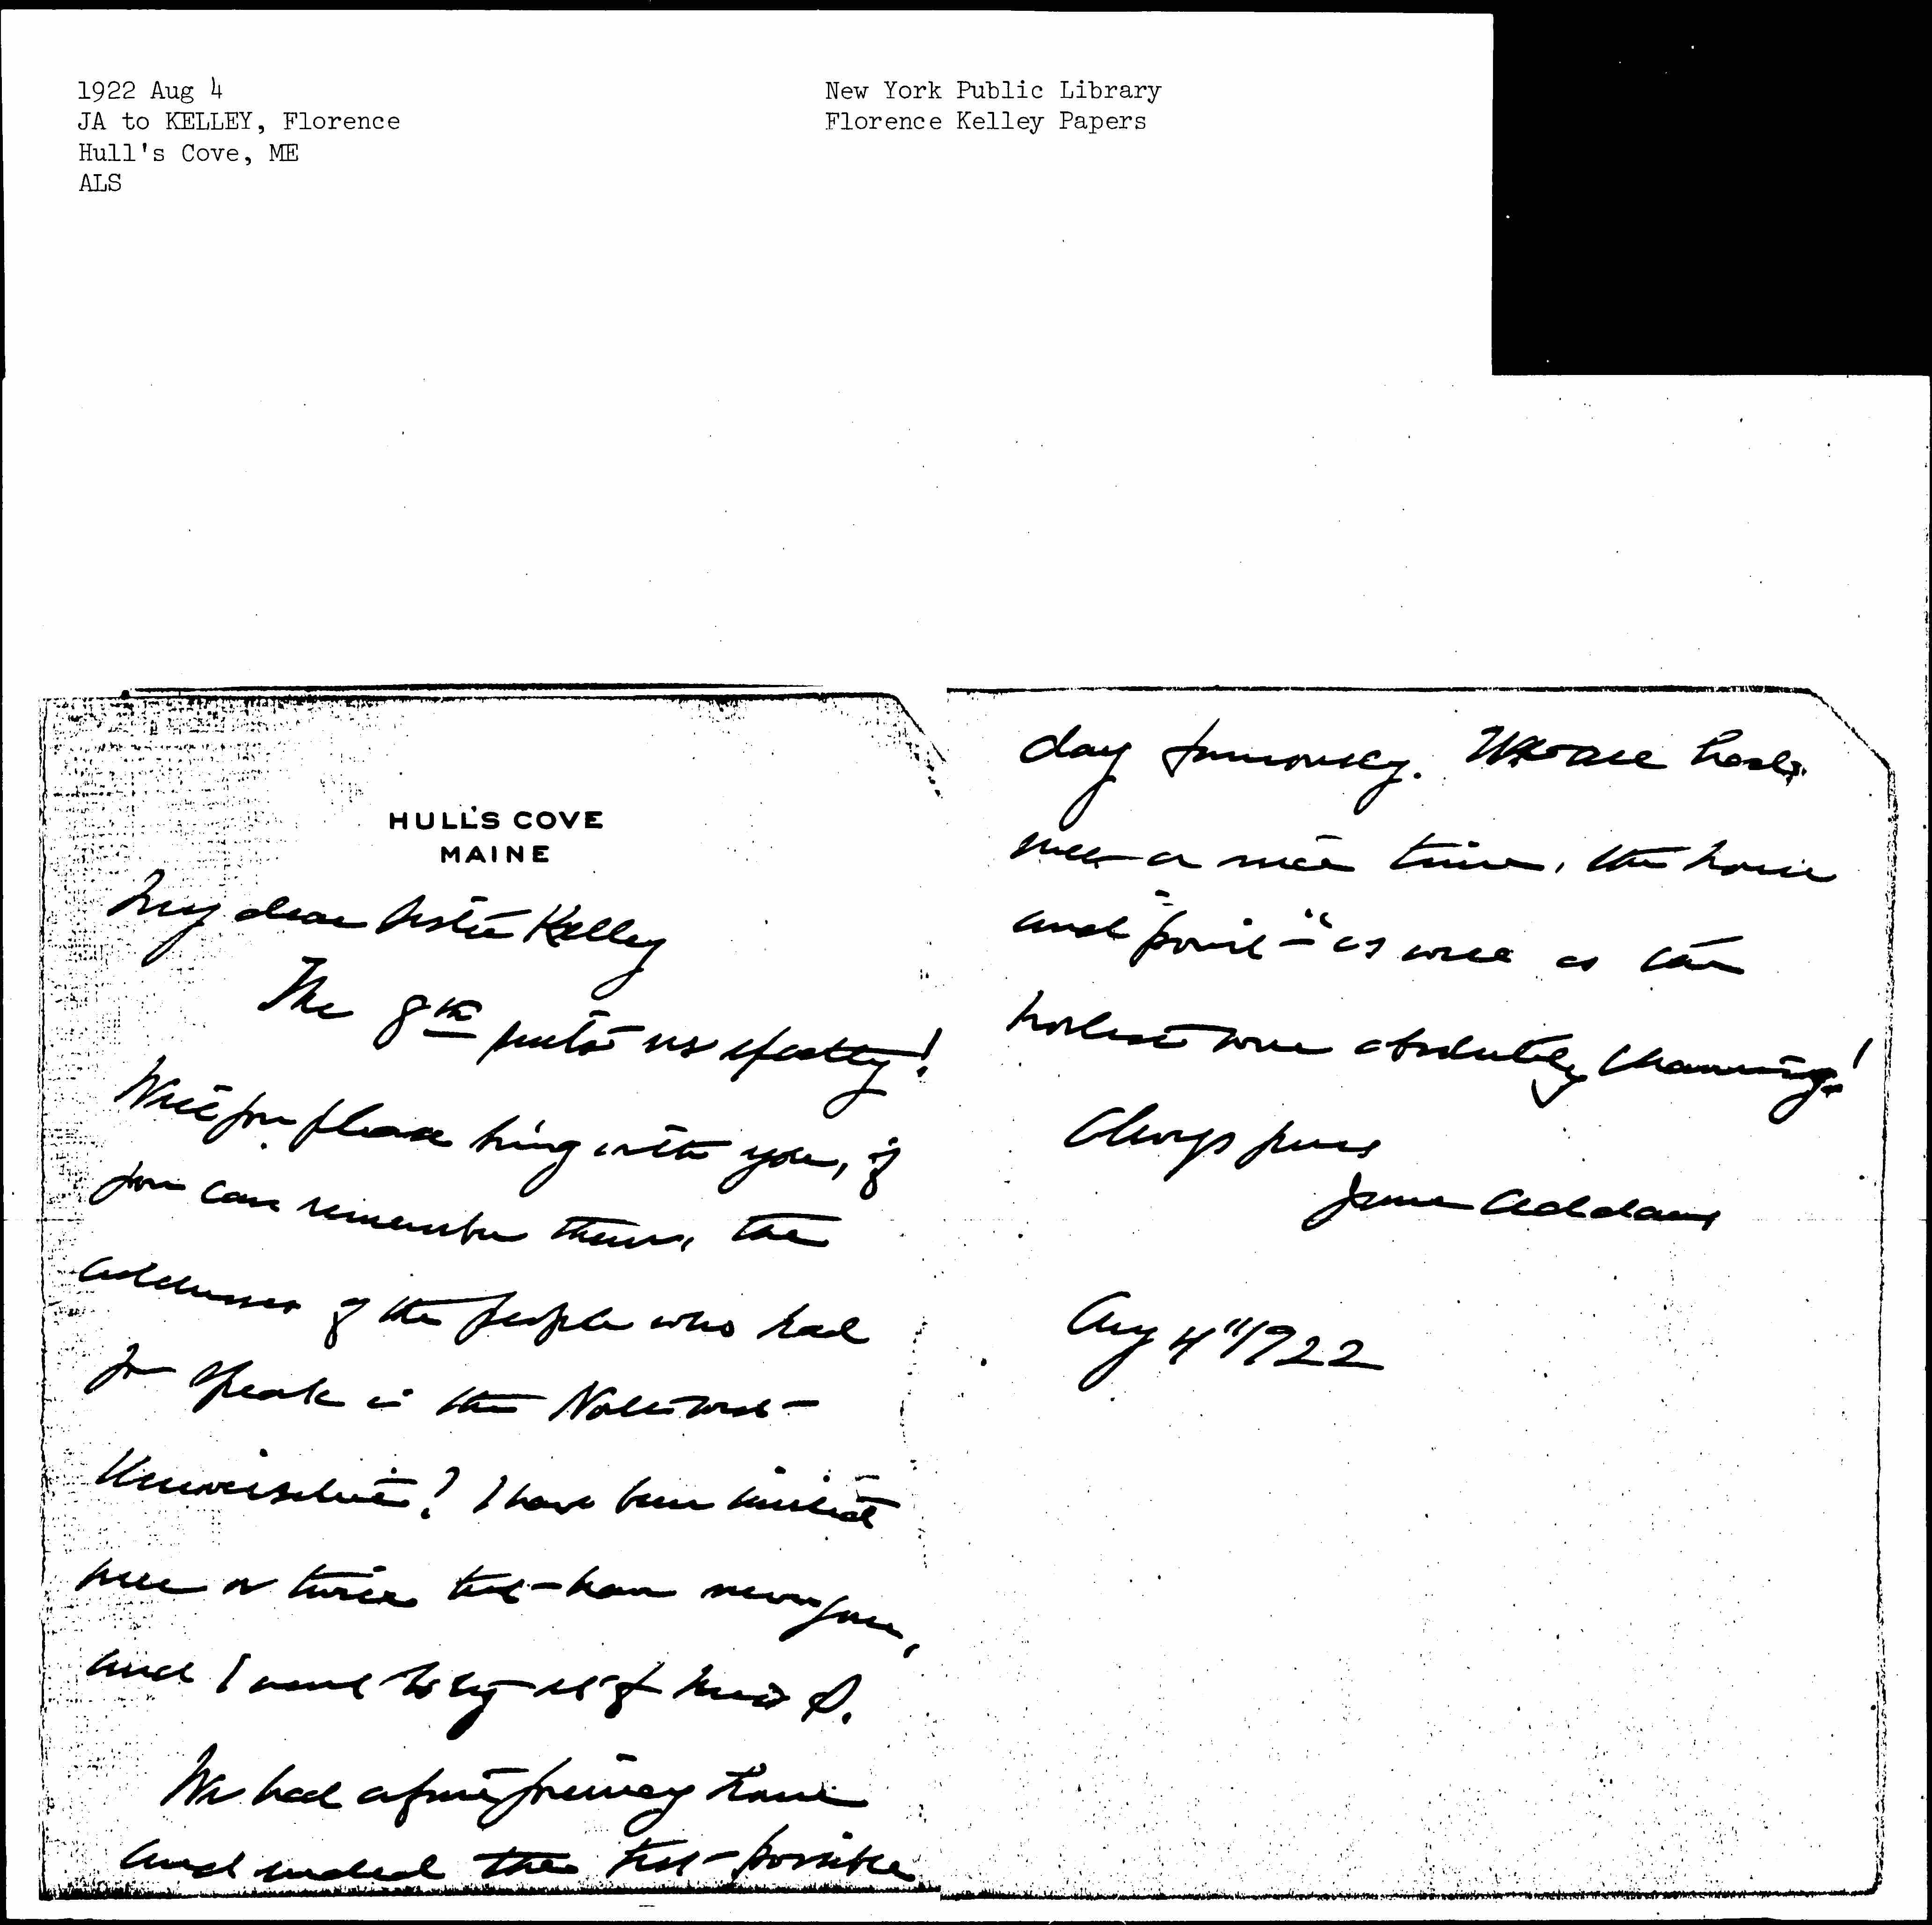 1922 Aug 4
JA to KELLEY, Florence
Hull's Cove, ME
ALS
New York Public Library
Florence Kelley Papers
HULL'S COVE
MAINE
My dear Sister Kelley
The 8th suits us perfectly!
Will you please bring with you, if
you can remember them, the
addresses of the people who had
you speak in the
Universities? I have been invited
once or twice but have never gone,
and I
We had a fine journey home
and ended the best possible
day famously. We all had
such a nice time, the house
and "point" as well as the
hostess were absolutely charming!
Always yours
Jane Addams
Aug 4" 1922